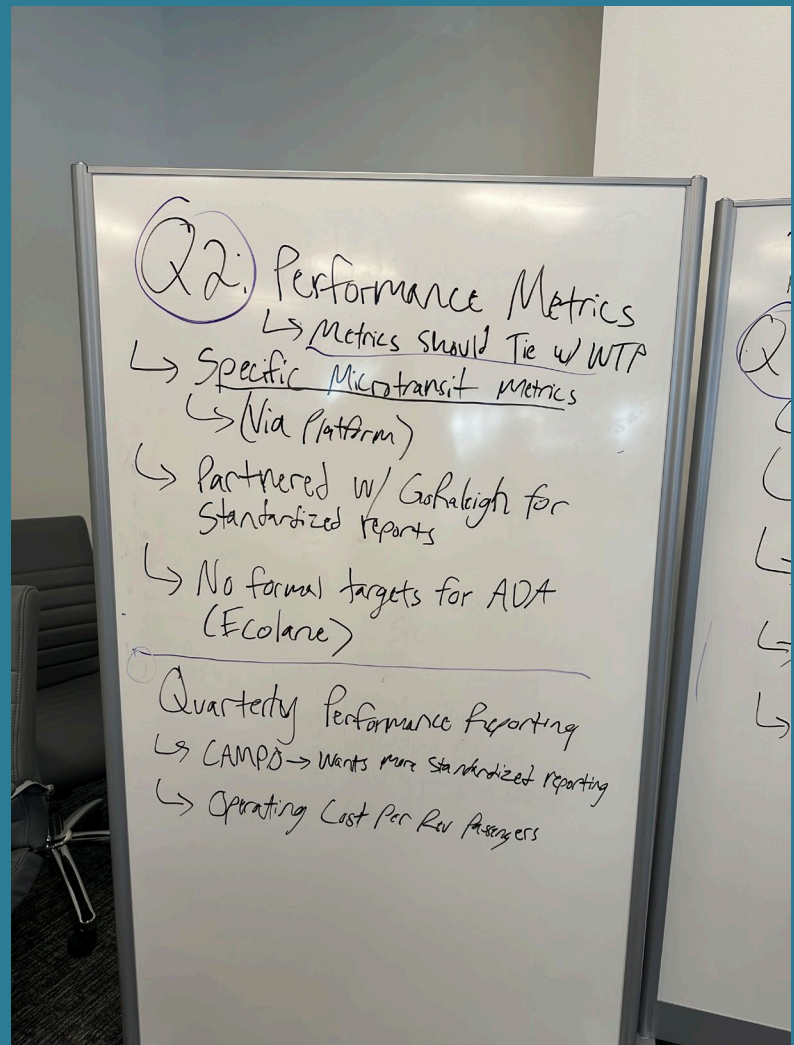 Q2: Performance Metrics
↳ Metrics should Tie w/ WTP
↳ Specific Microtransit Metrics
↳ (Via Platform)
↳ Partnered w/ GoRaleigh for
Standardized reports
↳ No formal targets for ADA
(Ecolane)
Quarterly Performance Reporting
↳ CAMPO → Wants more Standardized reporting
↳ Operating Cost Per Rev Passengers
Q